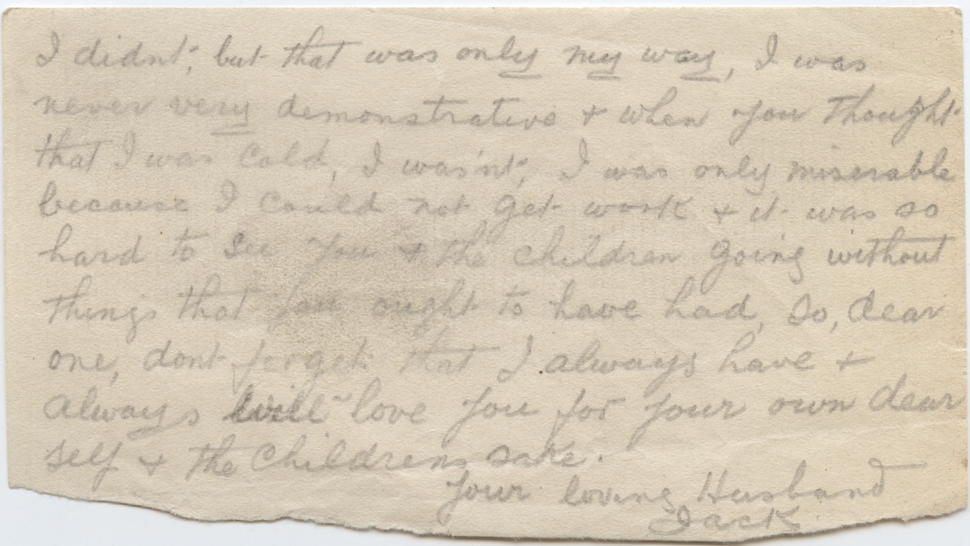 I didn't, but that was only my way, I was
never very demonstrative & when you thought
that I was cold, I was'nt, I was only miserable
because I could not get work & it was so
hard to see you & the children going without
things that you ought to have had, so, dear
one, dont forget that I always have &
always will love you for your own dear
self & the childrens sake.
Your loving Husband
Jack.